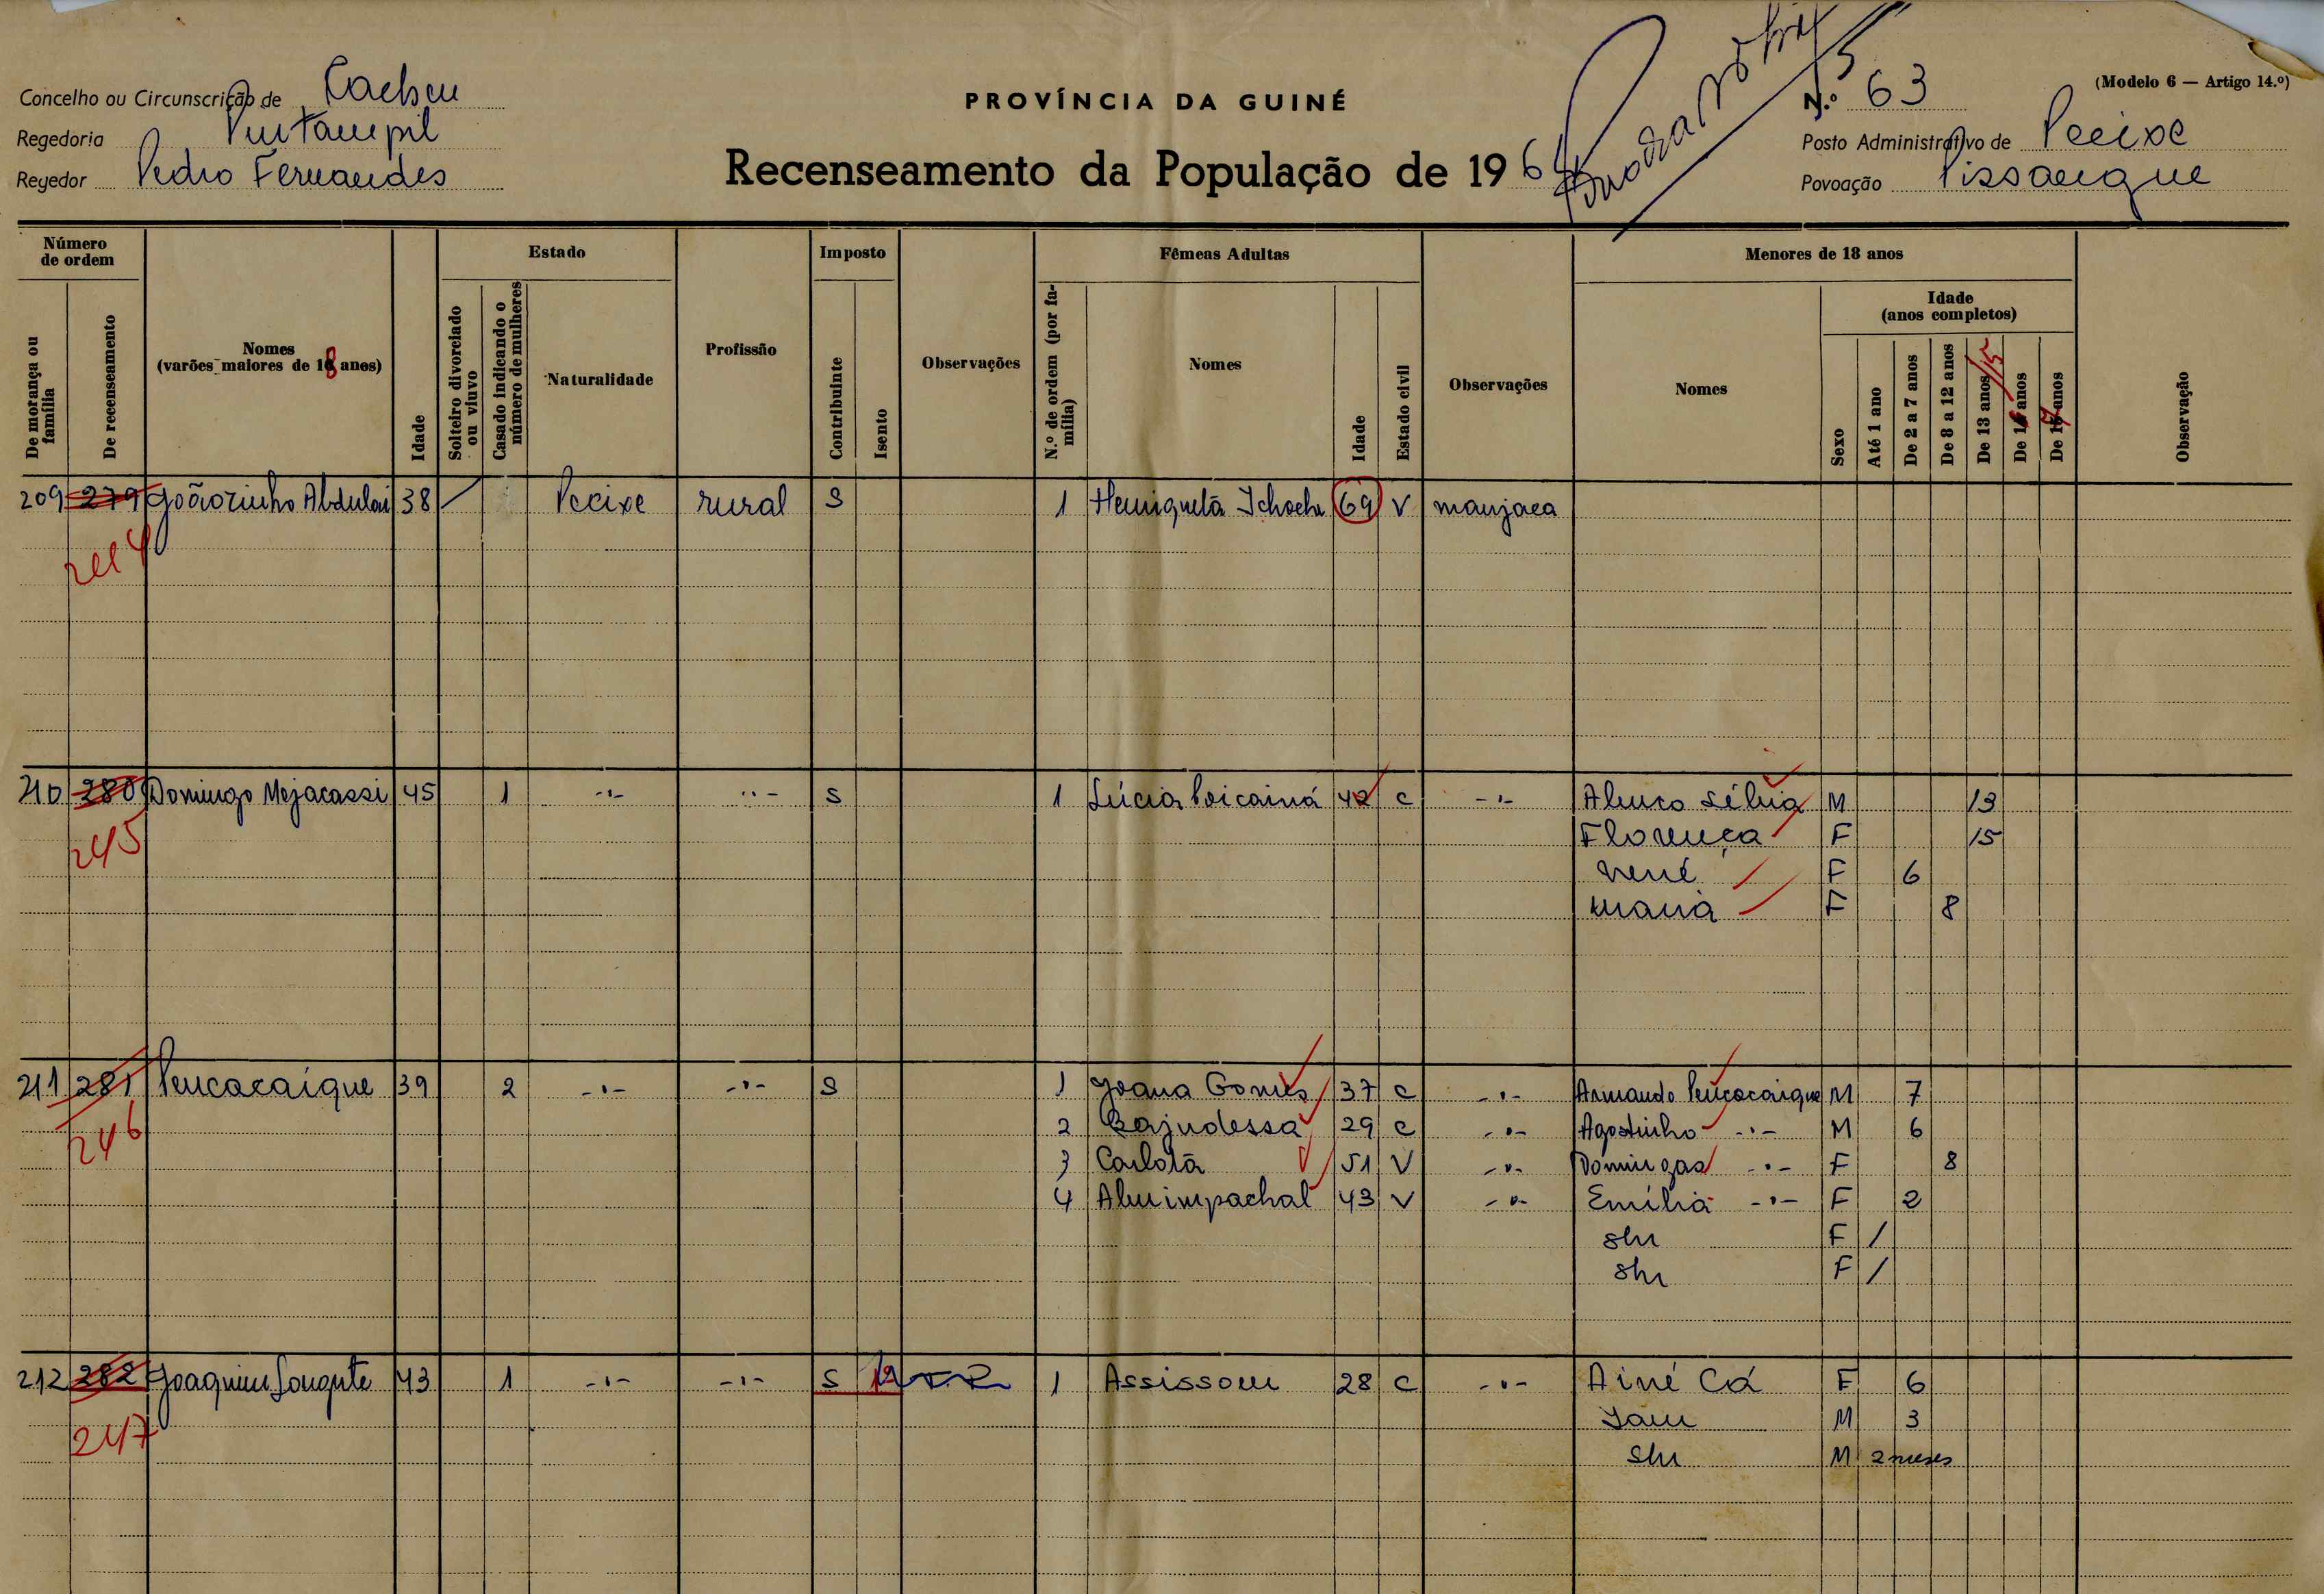 Concelho ou Circunscrição de Cacheu
Regedoria
Regedor Pedro Fernandes
PROVÍNCIA DA GUINÉ
Recenseamento da População de 196
N.º 63
(Modelo 6 — Artigo 14.º)
Posto Administrativo de Pecixe
Povoação
Número de ordem
De morança ou família
De recenseamento
Nomes
(varões maiores de 18 anos)
Idade
Estado
Solteiro divorciado ou viuvo
Casado indicando o número de mulheres
Naturalidade
Profissão
Imposto
Contribuinte
Isento
Observações
Fêmeas Adultas
N.º de ordem (por família)
Nomes
Idade
Estado civil
Observações
Menores de 18 anos
Nomes
Idade
(anos completos)
Sexo
Até 1 ano
De 2 a 7 anos
De 8 a 12 anos
De 13 anos /15
De 16 anos
De 17 anos
Observação
209 279 Joãozinho Abdulai 38 / Pecixe rural S 1 Henriqueta 69 V manjaca
244
210 280 Domingo Mejacassi 45 1 -"- -"- S 1 Lúcia 42 c -"- M 13
245 Florença F 15
nené F 6
F 8
211 281 Pencacaique 39 2 -"- -"- S 1 Joana Gomes 37 c -"- Armando Pencacaique M 7
246 2 29 c -"- Agostinho -"- M 6
3 Carlota 51 V -"- Domingas -"- F 8
4 43 V -"- Emília -"- F 2
shr F /
shr F /
212 282 Joaquim 43 1 -"- -"- S 1 Assissom 28 c -"- Ainé Cá F 6
247 M 3
shr M 2 meses